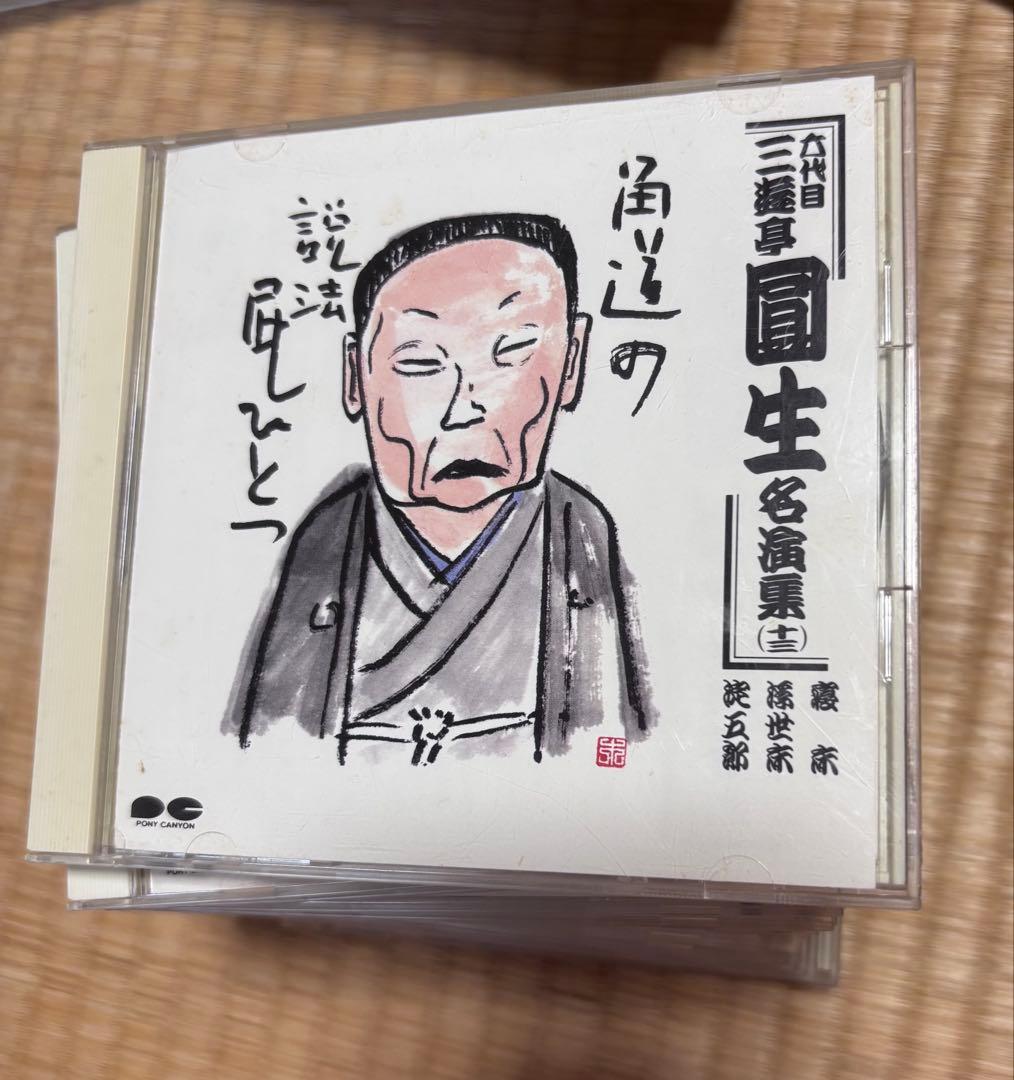 六代目
三遊亭圓生名演集(十三)
寝床
浮世床
淀五郎
角道の
説法
屁ひとつ
PONY CANYON